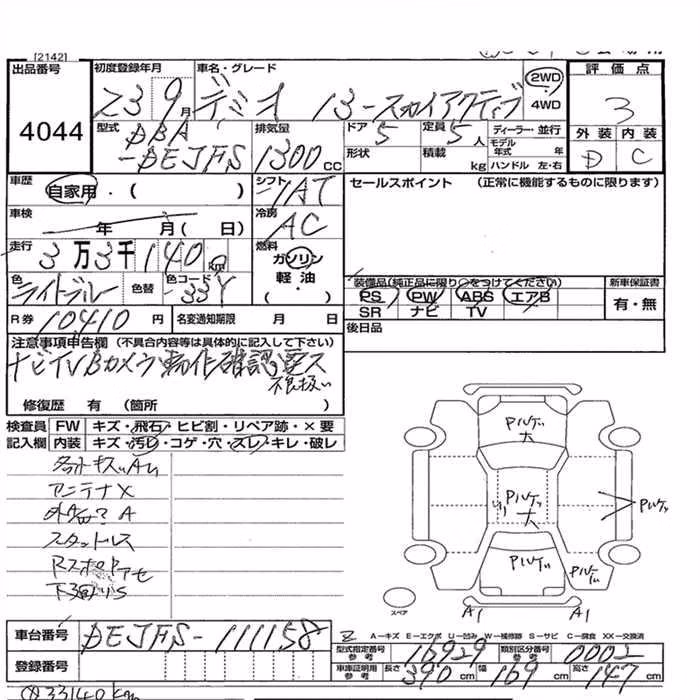 [2142]
出品番号
4044
初度登録年月
23 9月
車名・グレード
デミオ 13-スカイアクティブ
2WD
4WD
評価点
3
外装 内装
D C
型式
DBA
-DEJFS
排気量
1300cc
ドア 5
形状
定員 5人
積載 kg
ディーラー・並行
モデル年式 年
ハンドル 左・右
車歴
自家用・( )
シフト
AT
セールスポイント (正常に機能するものに限ります)
車検
年 月( 日)
冷房
AC
走行
3万3千140km
燃料
ガソリン
軽油
・( )
色
ライトブルー
色替
色コード
33Y
装備品(純正品に限り○をつけてください)
PS PW ABS エアB
SR ナビ TV
新車保証書
有・無
R券 10410円
名変通知期限 月 日
後日品
注意事項申告欄 (不具合内容等は具体的に記入して下さい)
ナビTVBカメラ動作確認運ス
不良扱い
修復歴 有 (箇所 )
検査員 FW キズ・飛石・ヒビ割・リペア跡・×要
記入欄 内装 キズ・汚レ・コゲ・穴・スレ・キレ・破レ
アンテナX
スタットレス
下廻りS
Pルケ大
Pルケ大
Pルケ
Pルケ
Pルケ
スペア
A1 A1
車台番号 DEJFS-111158
登録番号
A-キズ E-エクボ U-凹み W-補修跡 S-サビ C-腐食 XX-交換済
型式指定番号 参考 16929
類別区分番号 参考 0002
車庫証明用 参考 長さ 390cm 幅 169cm 高さ 147cm
33140km